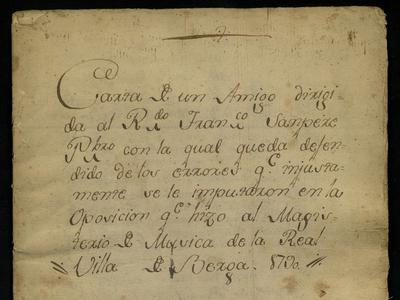 Carta de un Amigo dirigi-
da al R.do Fran.co Sanpere
Pbro con la qual queda defen-
dido de los errores q.e injusta-
mente se le imputaron en la
Oposicion q.e hizo al Magis-
terio de Musica de la Real
Villa de Berga. 1730.